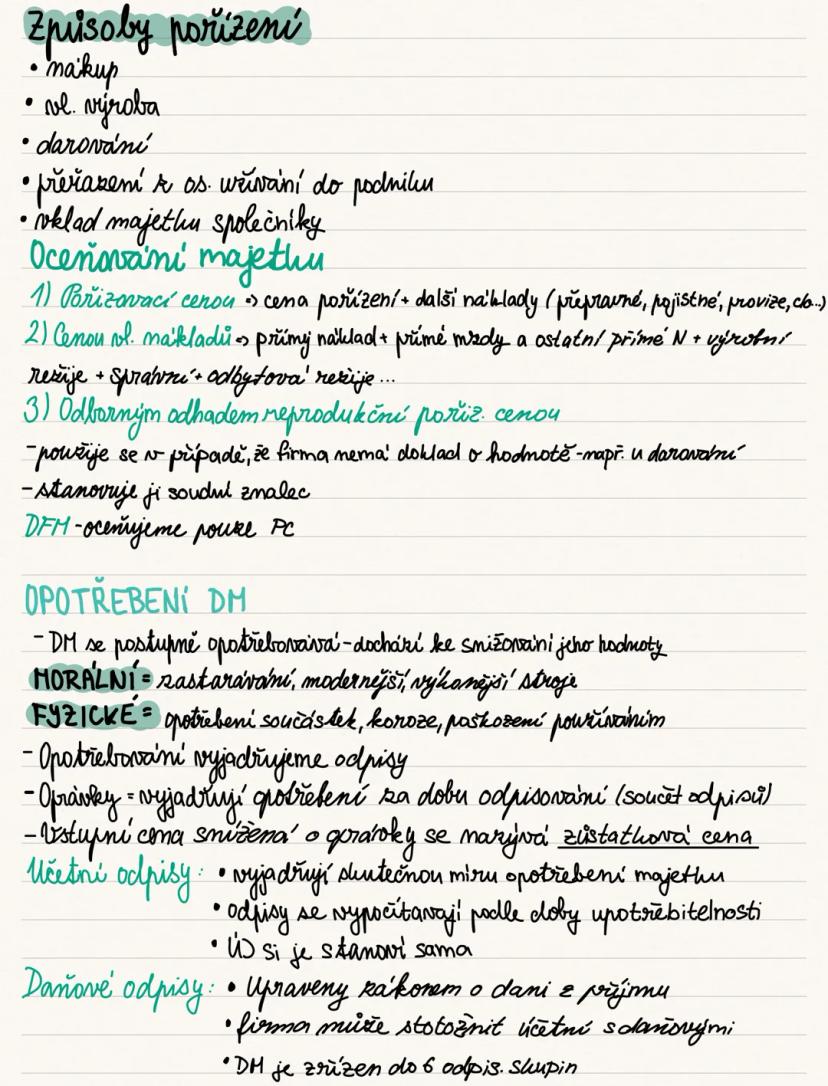 Způsoby pořízení
• nákup
• vl. výroba
• darování
• přeřazení z os. užívání do podniku
• vklad majetku společníky
Oceňování majetku
1) Pořizovací cenou => cena pořízení + další náklady (přepravné, pojistné, provize, clo...)
2) Cenou vl. nákladů => přímý náklad + přímé mzdy a ostatní přímé N + výrobní
režije + správní + odbytová režije...
3) Odborným odhadem reprodukční poříz. cenou
- použije se v případě, že firma nemá doklad o hodnotě - např. u darování
- stanovuje ji soudní znalec
DFM - oceňujeme pouze PC
OPOTŘEBENÍ DM
- DM se postupně opotřebovává - dochází ke snižování jeho hodnoty
MORÁLNÍ = zastarávání, modernější, výkonější stroje
FYZICKÉ = opotřebení součástek, koroze, poškození používáním
- Opotřebování vyjadřujeme odpisy
- Oprávky = vyjadřují opotřebení za dobu odpisování (součet odpisů)
- Vstupní cena snížená o oprávky se nazývá zůstatková cena
Účetní odpisy: • vyjadřují skutečnou míru opotřebení majetku
• odpisy se vypočítavají podle doby upotřebitelnosti
• ÚJ si je stanoví sama
Daňové odpisy: • Upraveny zákonem o dani z příjmu
• firma může stotožnit účetní s daňovými
• DM je zřízen do 6 odpis. skupin